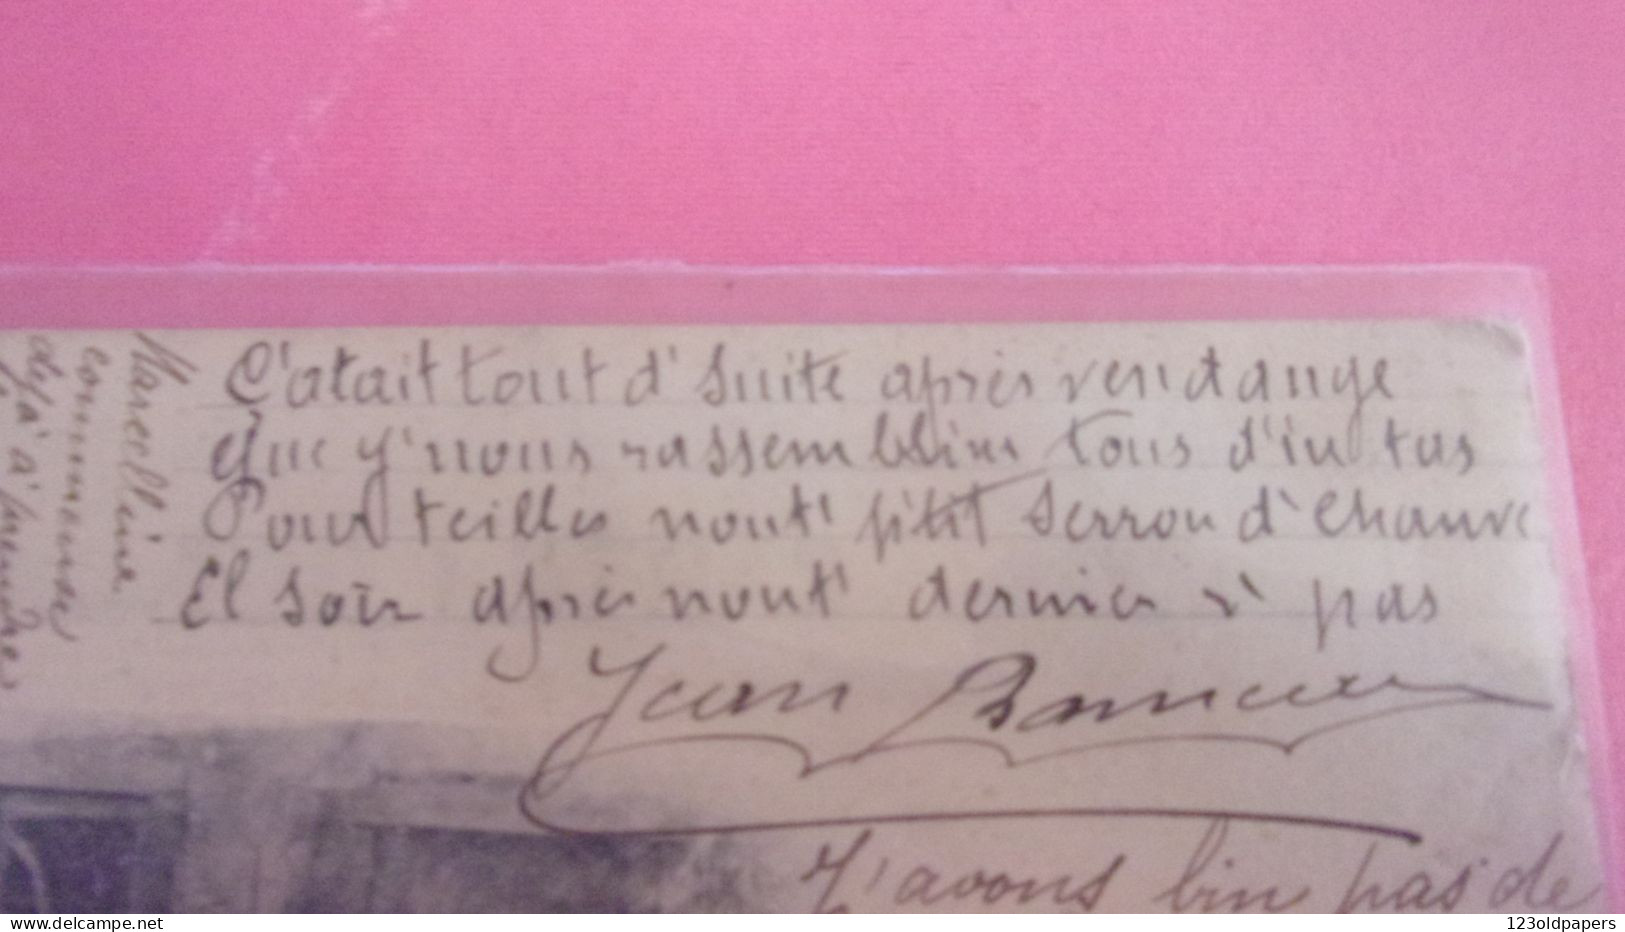 C'atait tout d' suite après vendange
Que j'nous rassemblins tous d'in tas
Pour teiller nout' p'tit serron d'chanvre
El soir après nout' dernier r'pas
Jean
J'avons bin pas de
Marcelline
commence
déjà à
123oldpapers
delcampe.net